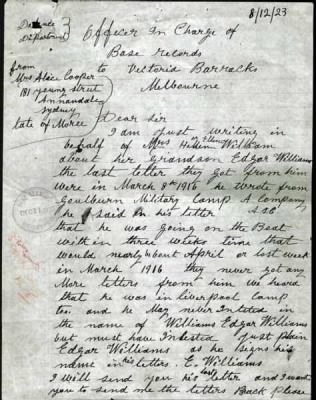 8/12/23
Defence
Department
Officer In Charge of
Base records
from
to Victoria Barracks
Mrs Alice Cooper
Melbourne
181 young street
Annandale
Sydney
late of Moree
Dear Ser
I am Just writing in
behalf of Mrs Hellen William
or Ellen
about her Grandson Edgar Williams
the last letter they got from him
were in March 8th 1916 he wrote from
Goulburn Military Camp A Company
he said in his letter
that he was going on the Boat
with in three weeks time that
would nearly about April or last week
in March 1916 they never got any
More letters from him we heard
that he was in Liverpool Camp
too. and he May never Inlested in
the name of Williams Edgar Williams
but must have Inlested Just plain
Edgar Williams as he signs his
name in his letters. E. Williams
last
I will send you his letter and I want
you to send me the letters Back Please